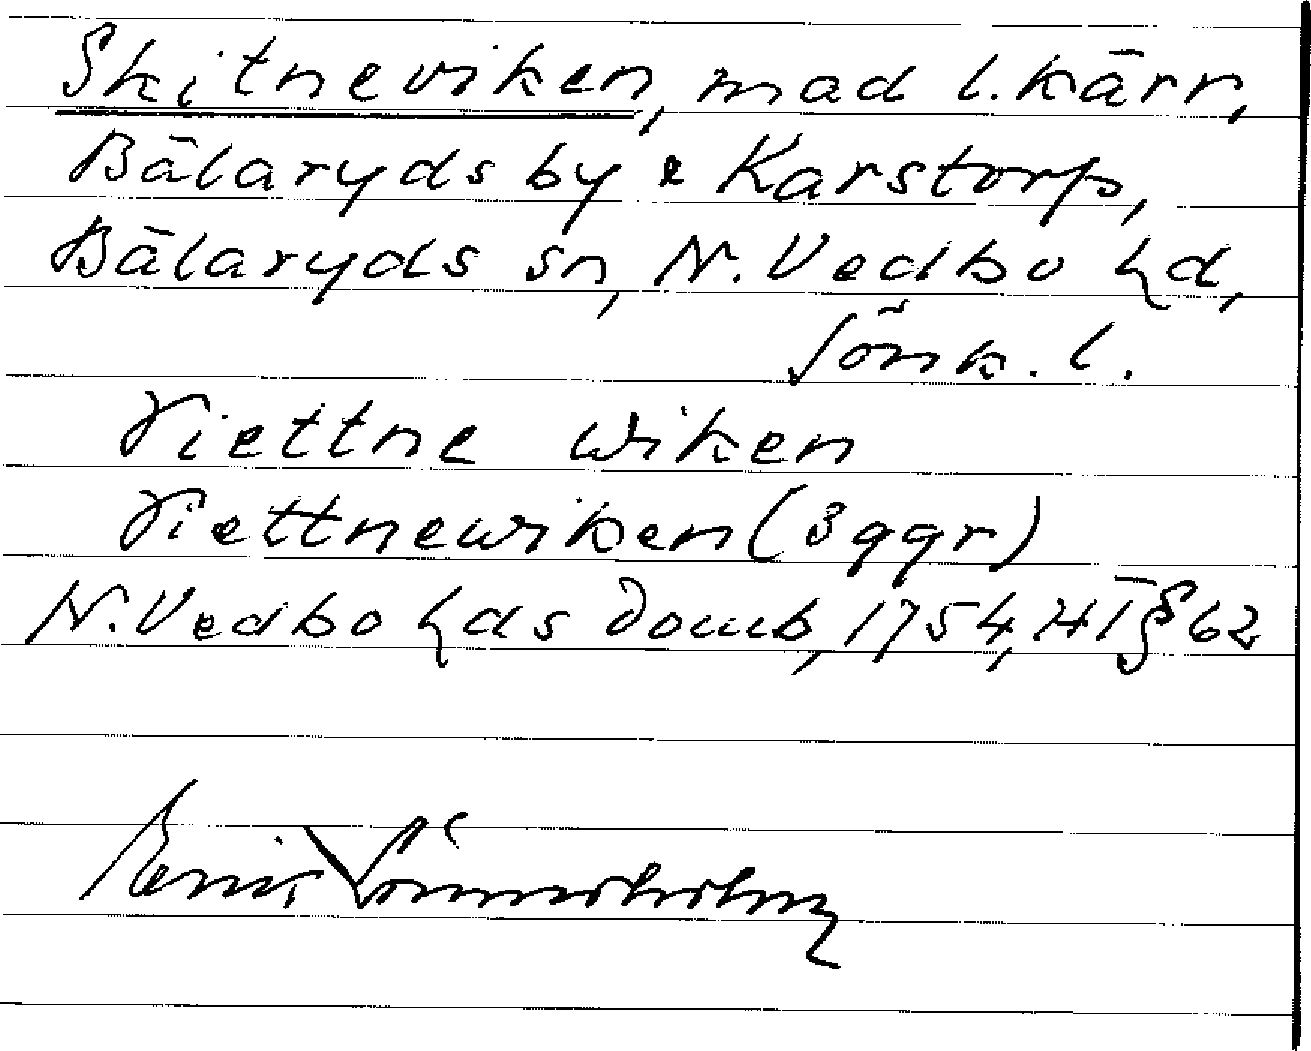 Skitneviken, mad l. kärr,
Bälaryds by & Karstorp,
Bälaryds sn, N. Vedbo hd,
Jönk. l.
Viettne wiken
Viettnewiken (3 ggr)
N. Vedbo hds domb, 1754, HT § 62